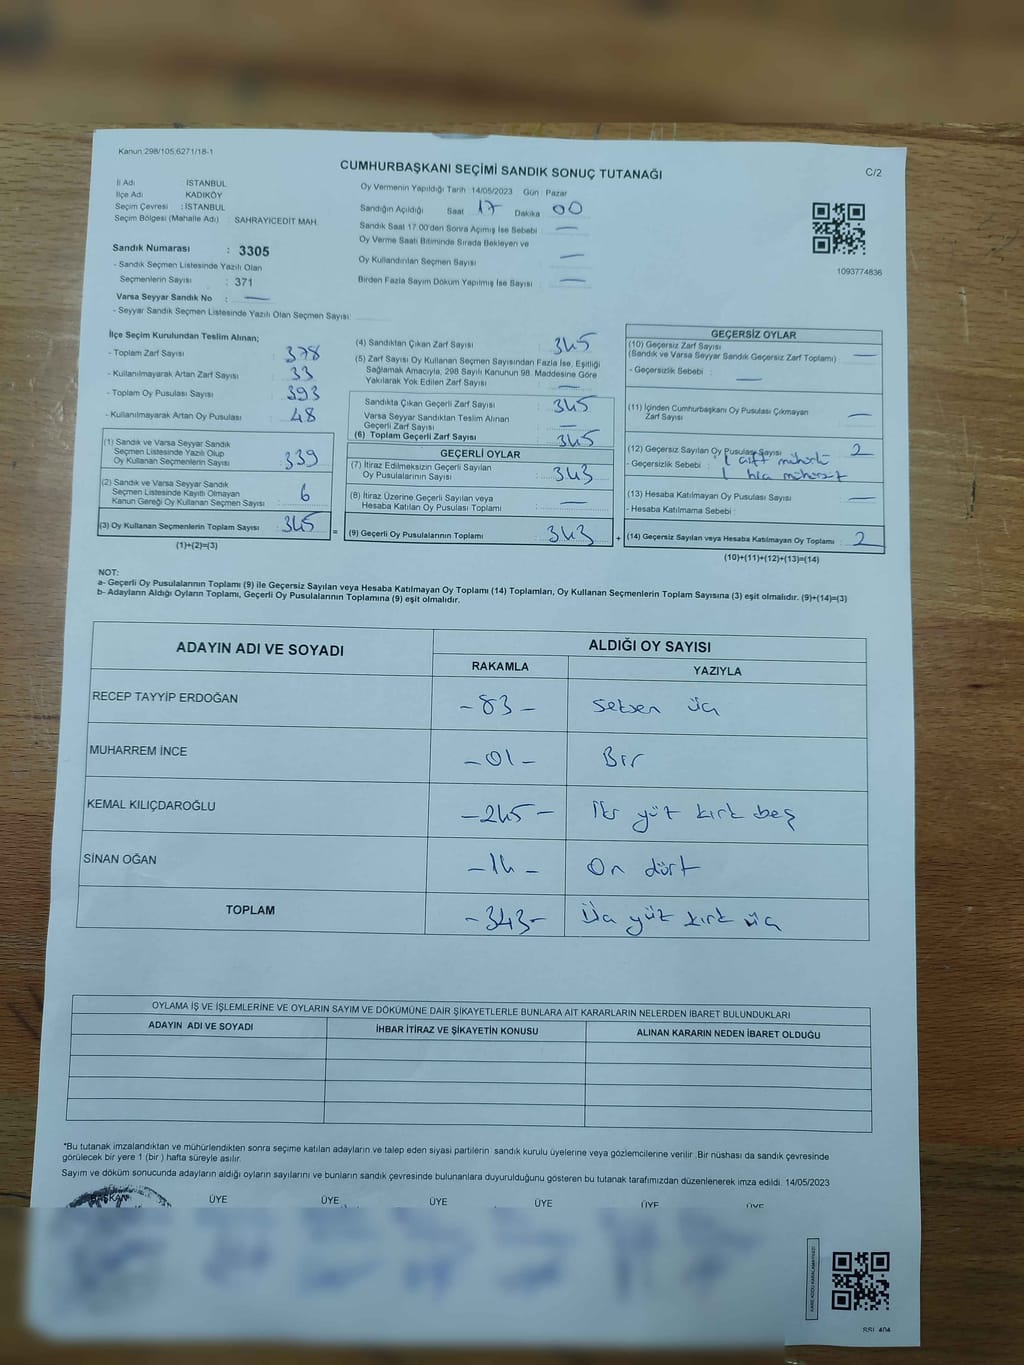 Kanun:298/105,6271/18-1
CUMHURBAŞKANI SEÇİMİ SANDIK SONUÇ TUTANAĞI
C/2
İl Adı : İSTANBUL
İlçe Adı : KADIKÖY
Seçim Çevresi : İSTANBUL
Seçim Bölgesi (Mahalle Adı) : SAHRAYICEDİT MAH.
Sandık Numarası : 3305
- Sandık Seçmen Listesinde Yazılı Olan
Seçmenlerin Sayısı : 371
Varsa Seyyar Sandık No : —
- Seyyar Sandık Seçmen Listesinde Yazılı Olan Seçmen Sayısı:
Oy Vermenin Yapıldığı Tarih :14/05/2023 Gün : Pazar
Sandığın Açıldığı Saat 17 Dakika 00
Sandık Saat 17:00'den Sonra Açımış İse Sebebi —
Oy Verme Saati Bitiminde Sırada Bekleyen ve
Oy Kullandırılan Seçmen Sayısı —
Birden Fazla Sayım Döküm Yapılmış İse Sayısı —
1093774836
İlçe Seçim Kurulundan Teslim Alınan;
- Toplam Zarf Sayısı : 378
- Kullanılmayarak Artan Zarf Sayısı : 33
- Toplam Oy Pusulası Sayısı : 393
- Kullanılmayarak Artan Oy Pusulası : 48
(1) Sandık ve Varsa Seyyar Sandık
Seçmen Listesinde Yazılı Olup
Oy Kullanan Seçmenlerin Sayısı : 339
(2) Sandık ve Varsa Seyyar Sandık
Seçmen Listesinde Kayıtlı Olmayan
Kanun Gereği Oy Kullanan Seçmen Sayısı : 6
(3) Oy Kullanan Seçmenlerin Toplam Sayısı : 345
(1)+(2)=(3)
(4) Sandıktan Çıkan Zarf Sayısı : 345
(5) Zarf Sayısı Oy Kullanan Seçmen Sayısından Fazla İse, Eşitliği
Sağlamak Amacıyla, 298 Sayılı Kanunun 98. Maddesine Göre
Yakılarak Yok Edilen Zarf Sayısı : —
Sandıkta Çıkan Geçerli Zarf Sayısı : 345
Varsa Seyyar Sandıktan Teslim Alınan
Geçerli Zarf Sayısı : —
(6) Toplam Geçerli Zarf Sayısı : 345
GEÇERLİ OYLAR
(7) İtiraz Edilmeksizin Geçerli Sayılan
Oy Pusulalarının Sayısı : 343
(8) İtiraz Üzerine Geçerli Sayılan veya
Hesaba Katılan Oy Pusulası Toplamı : —
= (9) Geçerli Oy Pusulalarının Toplamı : 343 +
GEÇERSİZ OYLAR
(10) Geçersiz Zarf Sayısı
(Sandık ve Varsa Seyyar Sandık Geçersiz Zarf Toplamı) —
- Geçersizlik Sebebi : —
(11) İçinden Cumhurbaşkanı Oy Pusulası Çıkmayan
Zarf Sayısı —
(12) Geçersiz Sayılan Oy Pusulası Sayısı : 2
- Geçersizlik Sebebi : 1 çift mühürlü
1 hiç mühürsüz
(13) Hesaba Katılmayan Oy Pusulası Sayısı : —
- Hesaba Katılmama Sebebi :
(14) Geçersiz Sayılan veya Hesaba Katılmayan Oy Toplamı : 2
(10)+(11)+(12)+(13)=(14)
NOT:
a- Geçerli Oy Pusulalarının Toplamı (9) ile Geçersiz Sayılan veya Hesaba Katılmayan Oy Toplamı (14) Toplamları, Oy Kullanan Seçmenlerin Toplam Sayısına (3) eşit olmalıdır. (9)+(14)=(3)
b- Adayların Aldığı Oyların Toplamı, Geçerli Oy Pusulalarının Toplamına (9) eşit olmalıdır.
ADAYIN ADI VE SOYADI
ALDIĞI OY SAYISI
RAKAMLA YAZIYLA
RECEP TAYYİP ERDOĞAN -83- Seksen üç
MUHARREM İNCE -01- Bir
KEMAL KILIÇDAROĞLU -245- İki yüz kırk beş
SİNAN OĞAN -14- On dört
TOPLAM -343- Üç yüz kırk üç
OYLAMA İŞ VE İŞLEMLERİNE VE OYLARIN SAYIM VE DÖKÜMÜNE DAİR ŞİKAYETLERLE BUNLARA AİT KARARLARIN NELERDEN İBARET BULUNDUKLARI
ADAYIN ADI VE SOYADI İHBAR İTİRAZ VE ŞİKAYETİN KONUSU ALINAN KARARIN NEDEN İBARET OLDUĞU
*Bu tutanak imzalandıktan ve mühürlendikten sonra seçime katılan adayların ve talep eden siyasi partilerin sandık kurulu üyelerine veya gözlemcilerine verilir. Bir nüshası da sandık çevresinde
görülecek bir yere 1 (bir) hafta süreyle asılır.
Sayım ve döküm sonucunda adayların aldığı oyların sayılarını ve bunların sandık çevresinde bulunanlara duyurulduğunu gösteren bu tutanak tarafımızdan düzenlenerek imza edildi. 14/05/2023
BAŞKAN ÜYE ÜYE ÜYE ÜYE ÜYE ÜYE